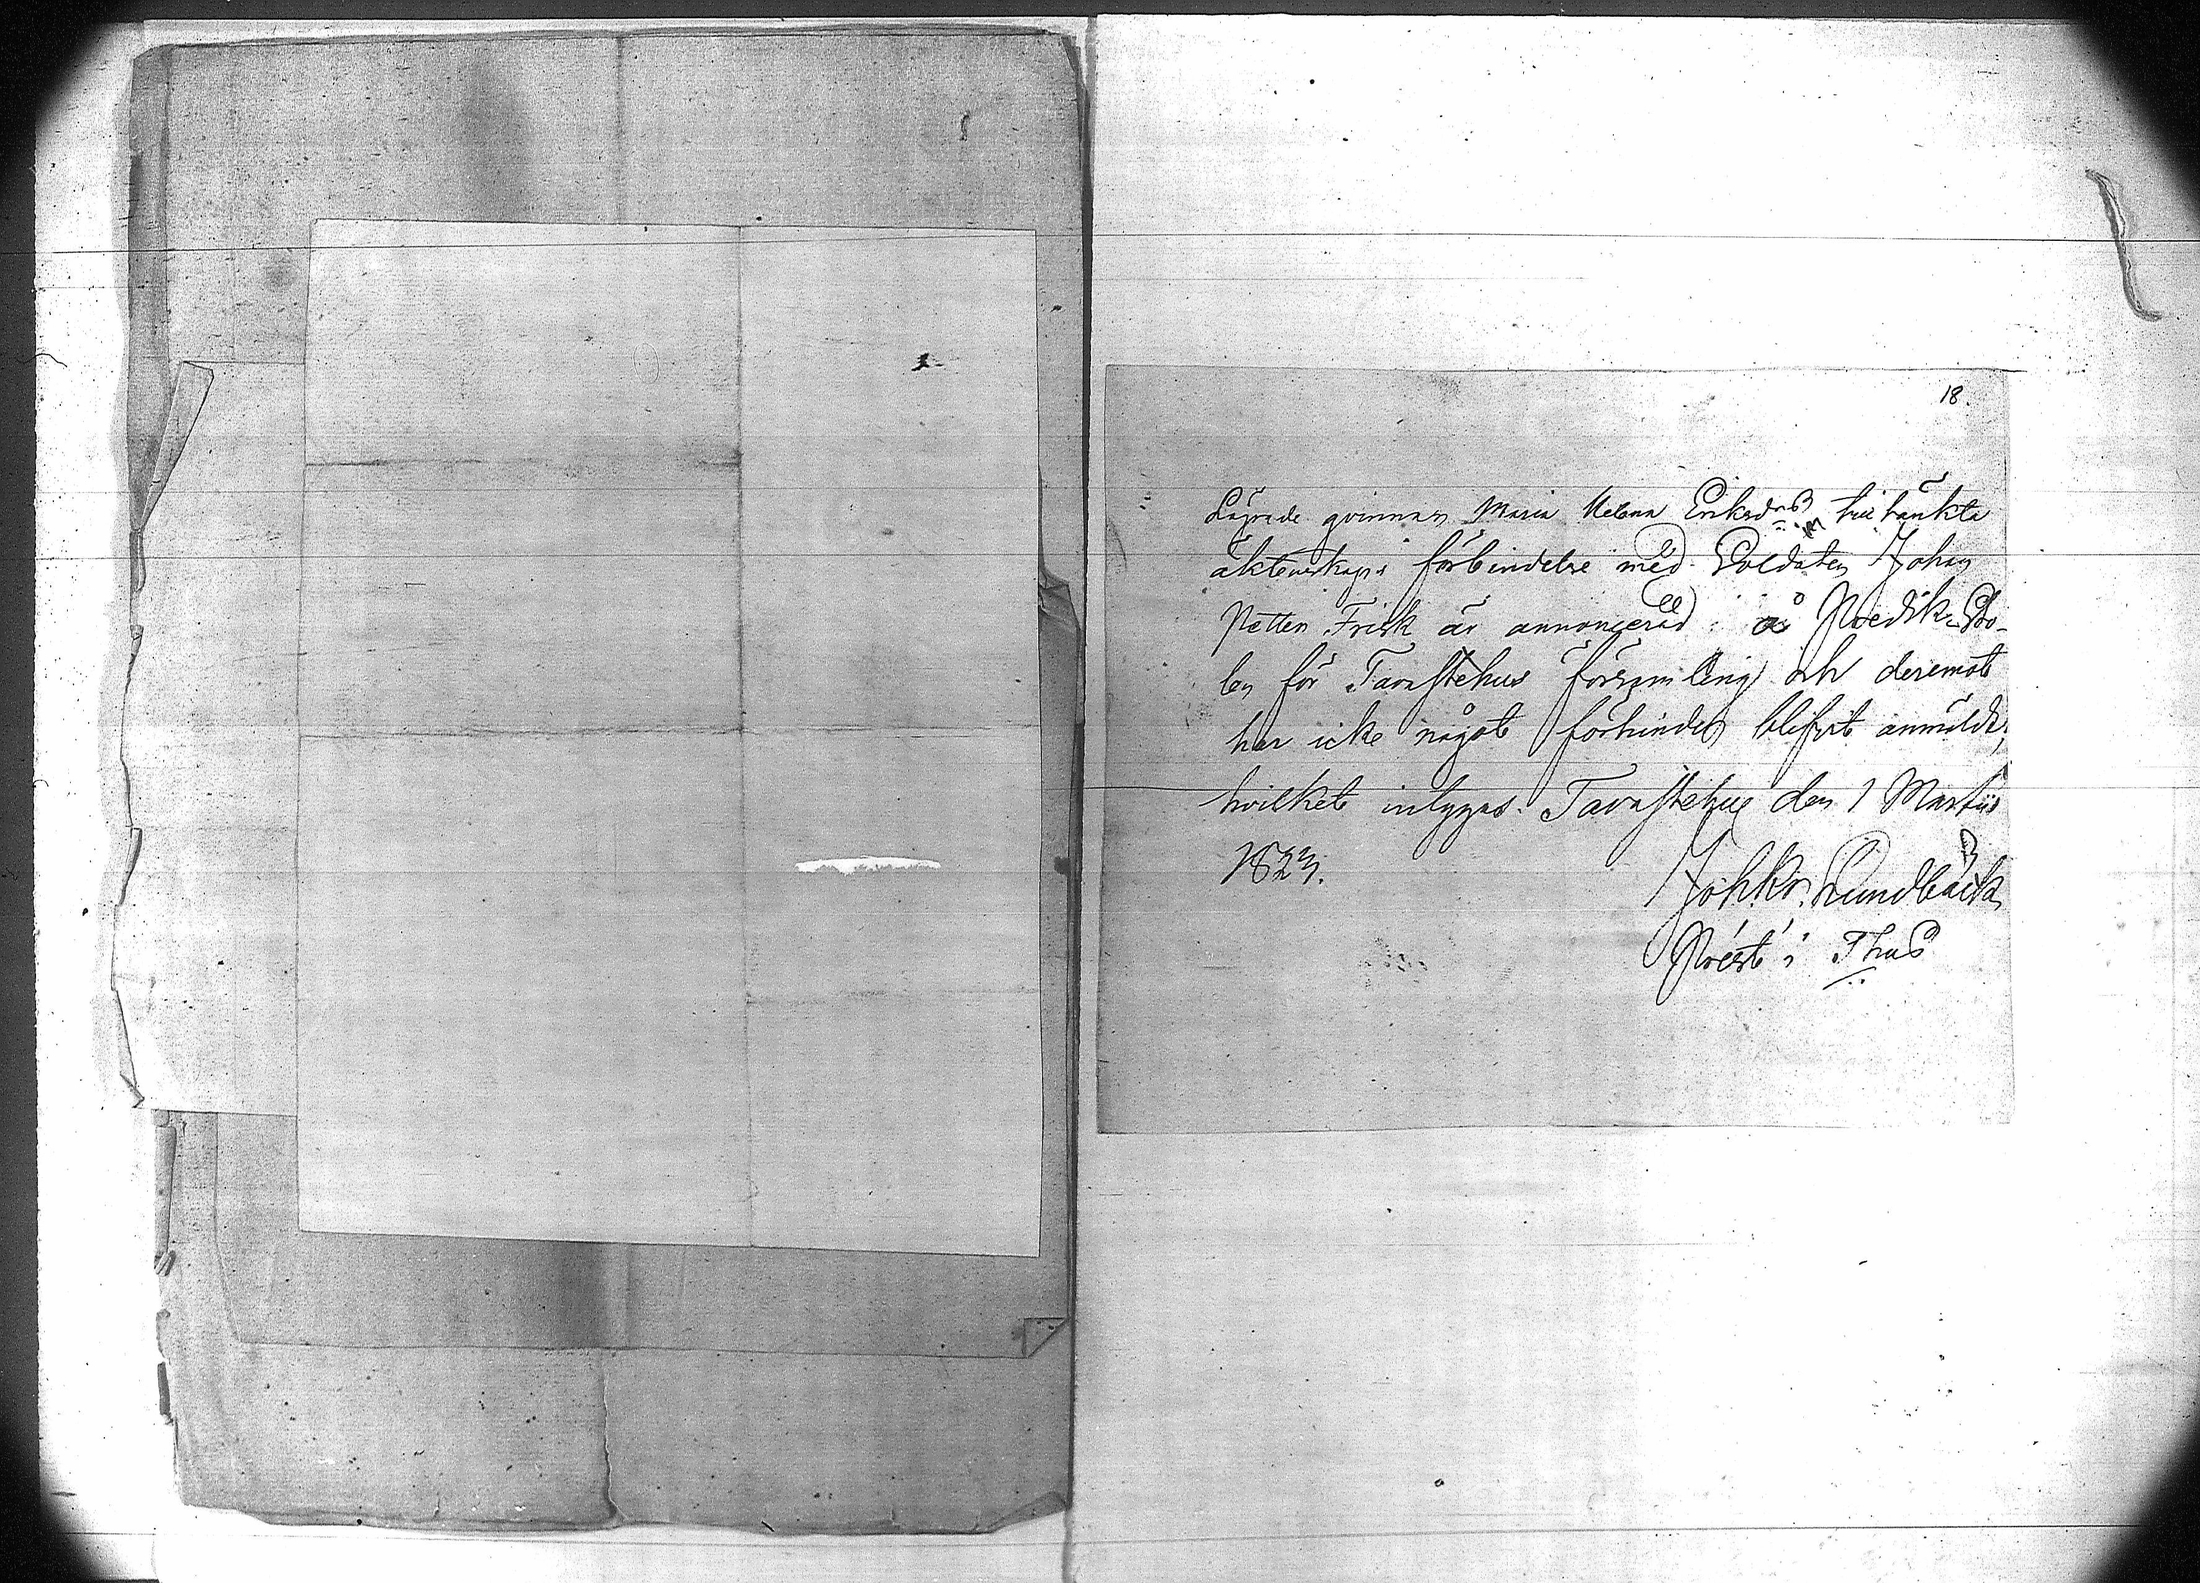 18.
Lägrade qvinnan Maria Helena Eriksdr tilltänkta
äktenskaps förbindelse med Soldaten Johan
Petter Frisk är annoncerad å Predik-Sto-
len för Tavastehus församling och deremot
har icke något förhinder blifvit anmäldt,
hvilket intygas. Tavastehus den 1 Martii
1823.
Lundbäck
Prest i Thus